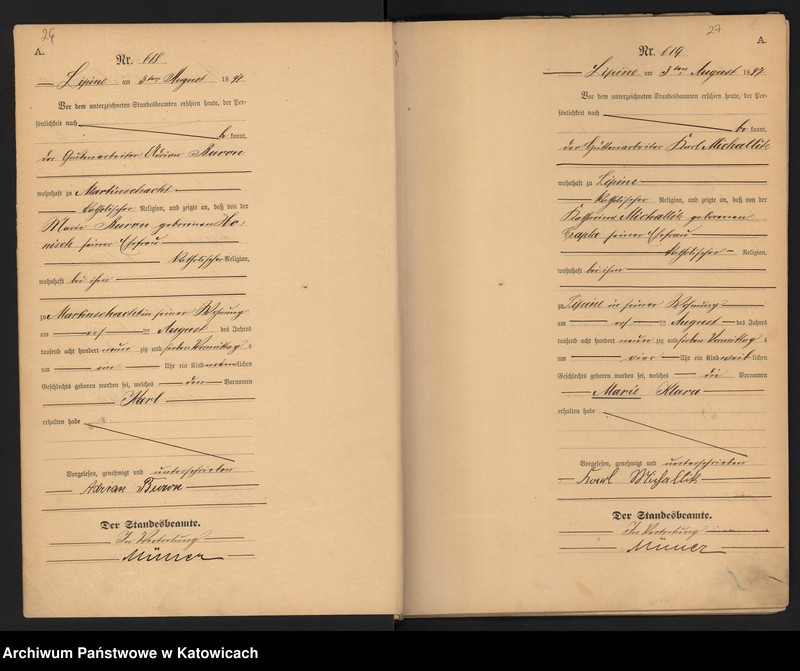 26
A.
Nr. 618
Lipine am 3ten August 1897
Vor dem unterzeichneten Standesbeamten erschien heute, der Per-
sönlichkeit nach
be kannt,
der Grubenarbeiter Adrian Buron
wohnhaft zu Martinschacht
katholischer Religion, und zeigte an, daß von der
Marie Buron geborenen Ho-
nisch seiner Ehefrau
katholischer Religion,
wohnhaft bei ihm
zu Martinschacht in seiner Wohnung
am August des Jahres
tausend acht hundert neun zig und sieben Vormittag s
um ein Uhr ein Kind männlichen
Geschlechts geboren worden sei, welches den Vornamen
Karl
erhalten habe
Vorgelesen, genehmigt und unterschrieben
Adrian Buron
Der Standesbeamte.
In Vertretung
27
A.
Nr. 619
Lipine am 3ten August 1897
Vor dem unterzeichneten Standesbeamten erschien heute, der Per-
sönlichkeit nach
be kannt,
der Hüttenarbeiter Karl Michallik
wohnhaft zu Lipine
katholischer Religion, und zeigte an, daß von der
Michallik geborenen
seiner Ehefrau
katholischer Religion,
wohnhaft bei ihm
zu Lipine in seiner Wohnung
am August des Jahres
tausend acht hundert neun zig und sieben Vormittag s
um vier Uhr ein Kind weiblichen
Geschlechts geboren worden sei, welches die Vornamen
Marie Klara
erhalten habe
Vorgelesen, genehmigt und unterschrieben
Karl Michallik
Der Standesbeamte.
In Vertretung
Archiwum Państwowe w Katowicach